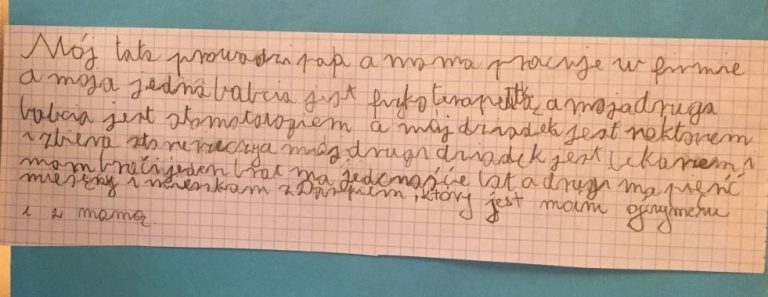 Mój tata prowadzi pap a mama pracuje w firmie
a moja jedna babcia jest fizykoterapeutką a moja druga
babcia jest stomatologiem a mój dziadek jest rektorem
i zbiera a mój drugi dziadek jest lekarzem i
mam braci jeden brat ma jedenaście lat a drugi ma pięć
miesięcy i mieszkam z , który jest moim ojczymem
i z mamą